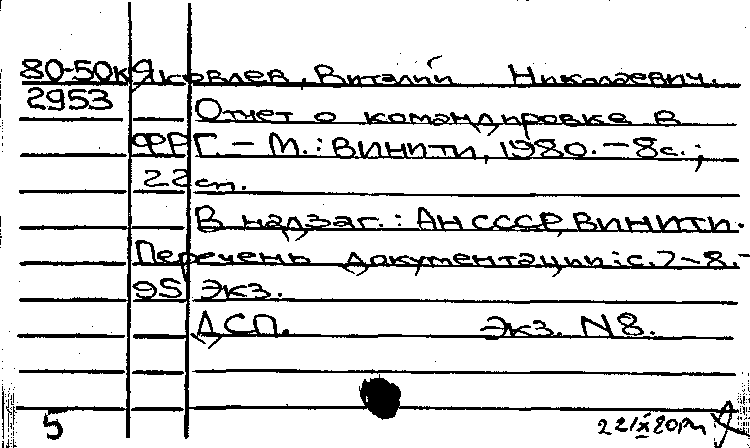 80-50к Яковлев, Виталий Николаевич.
2953 Отчет о командировке в
ФРГ. - М.: ВИНИТИ, 1980. - 8с.;
22сп.
В надзаг.: АН СССР, ВИНИТИ.
Перечень документации: с. 7-8. -
95 экз.
ДСП. Экз. N8.
5